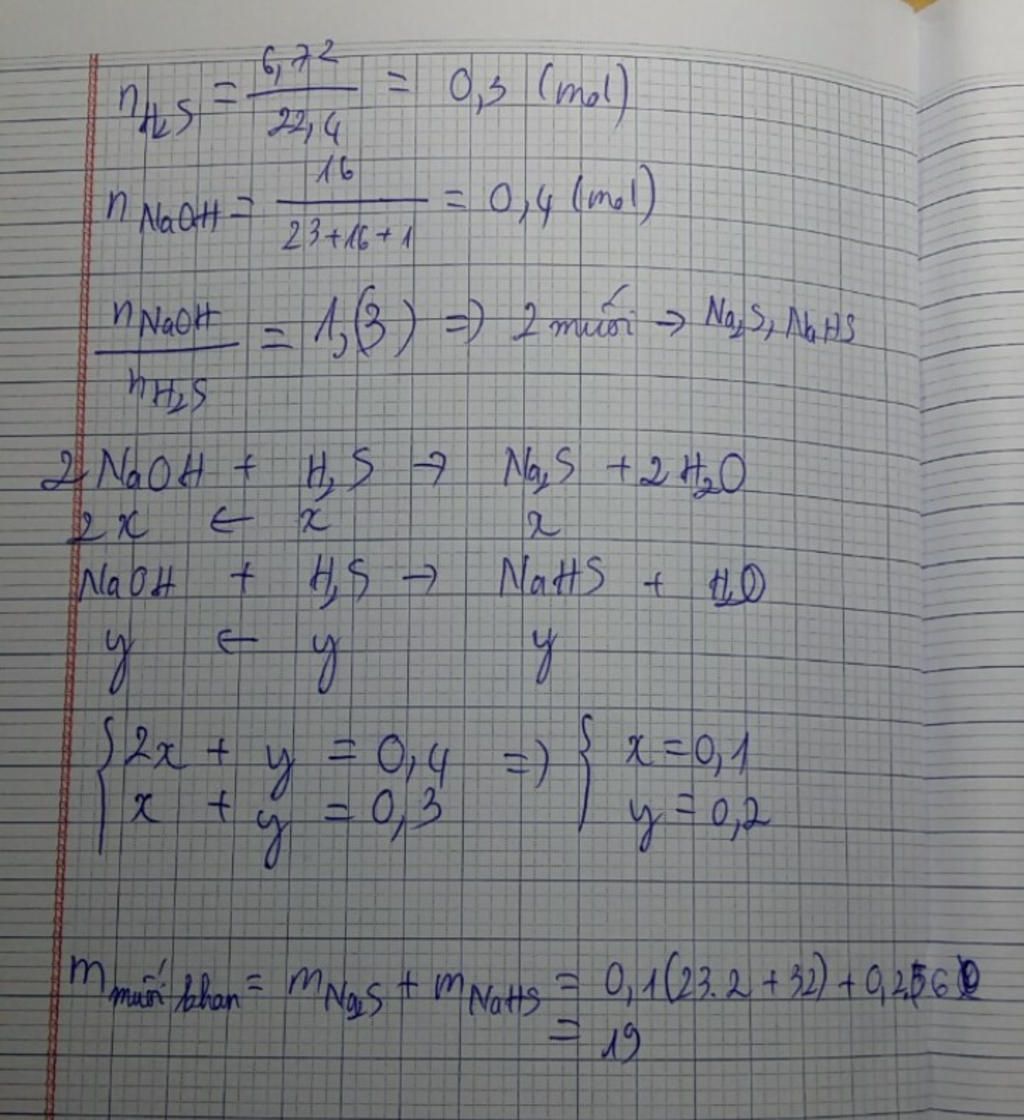 n_H₂S = 6,72 / 22,4 = 0,3 (mol)
n_NaOH = 16 / 23+16+1 = 0,4 (mol)
n_NaOH / n_H₂S = 1,(3) => 2 muối → Na₂S, NaHS
2 NaOH + H₂S → Na₂S + 2 H₂O
2x ← x x
NaOH + H₂S → NaHS + H₂O
y ← y y
{ 2x + y = 0,4 => { x = 0,1
x + y = 0,3 y = 0,2
m muối khan = m_Na₂S + m_NaHS = 0,1(23.2 + 32) + 0,2.56
= 19